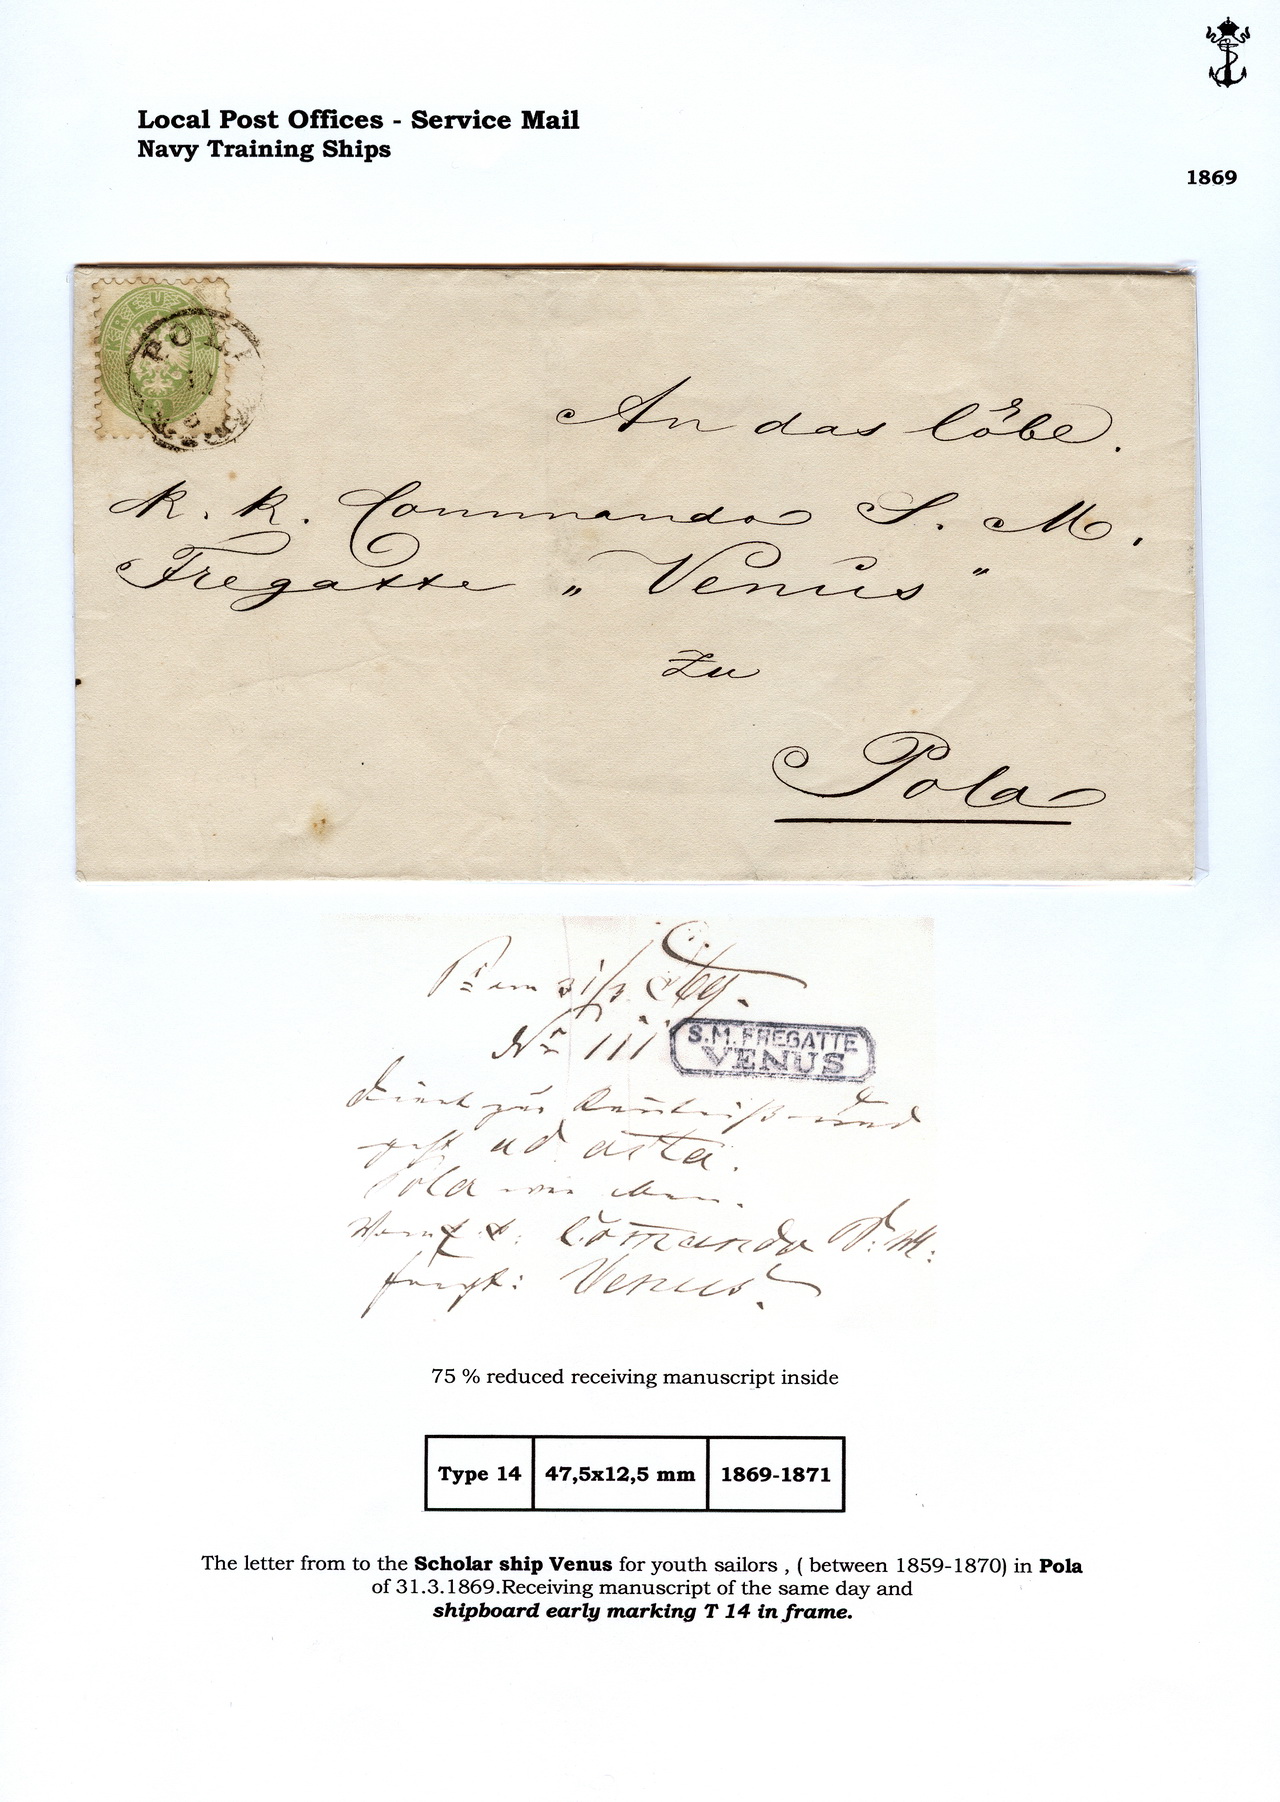 Local Post Offices - Service Mail
Navy Training Ships
1869
KREUZ
POLA
An das löbe.
k. k. Commando S. M.
Fregatte „Venus"
Zu
Pola
31/3 869.
Nr 111
S.M. FREGATTE
VENUS
zur und
ad acta.
Pola
Comando S. M.
Fregt: Venus.
75 % reduced receiving manuscript inside
Type 14 47,5x12,5 mm 1869-1871
The letter from to the Scholar ship Venus for youth sailors , ( between 1859-1870) in Pola
of 31.3.1869.Receiving manuscript of the same day and
shipboard early marking T 14 in frame.